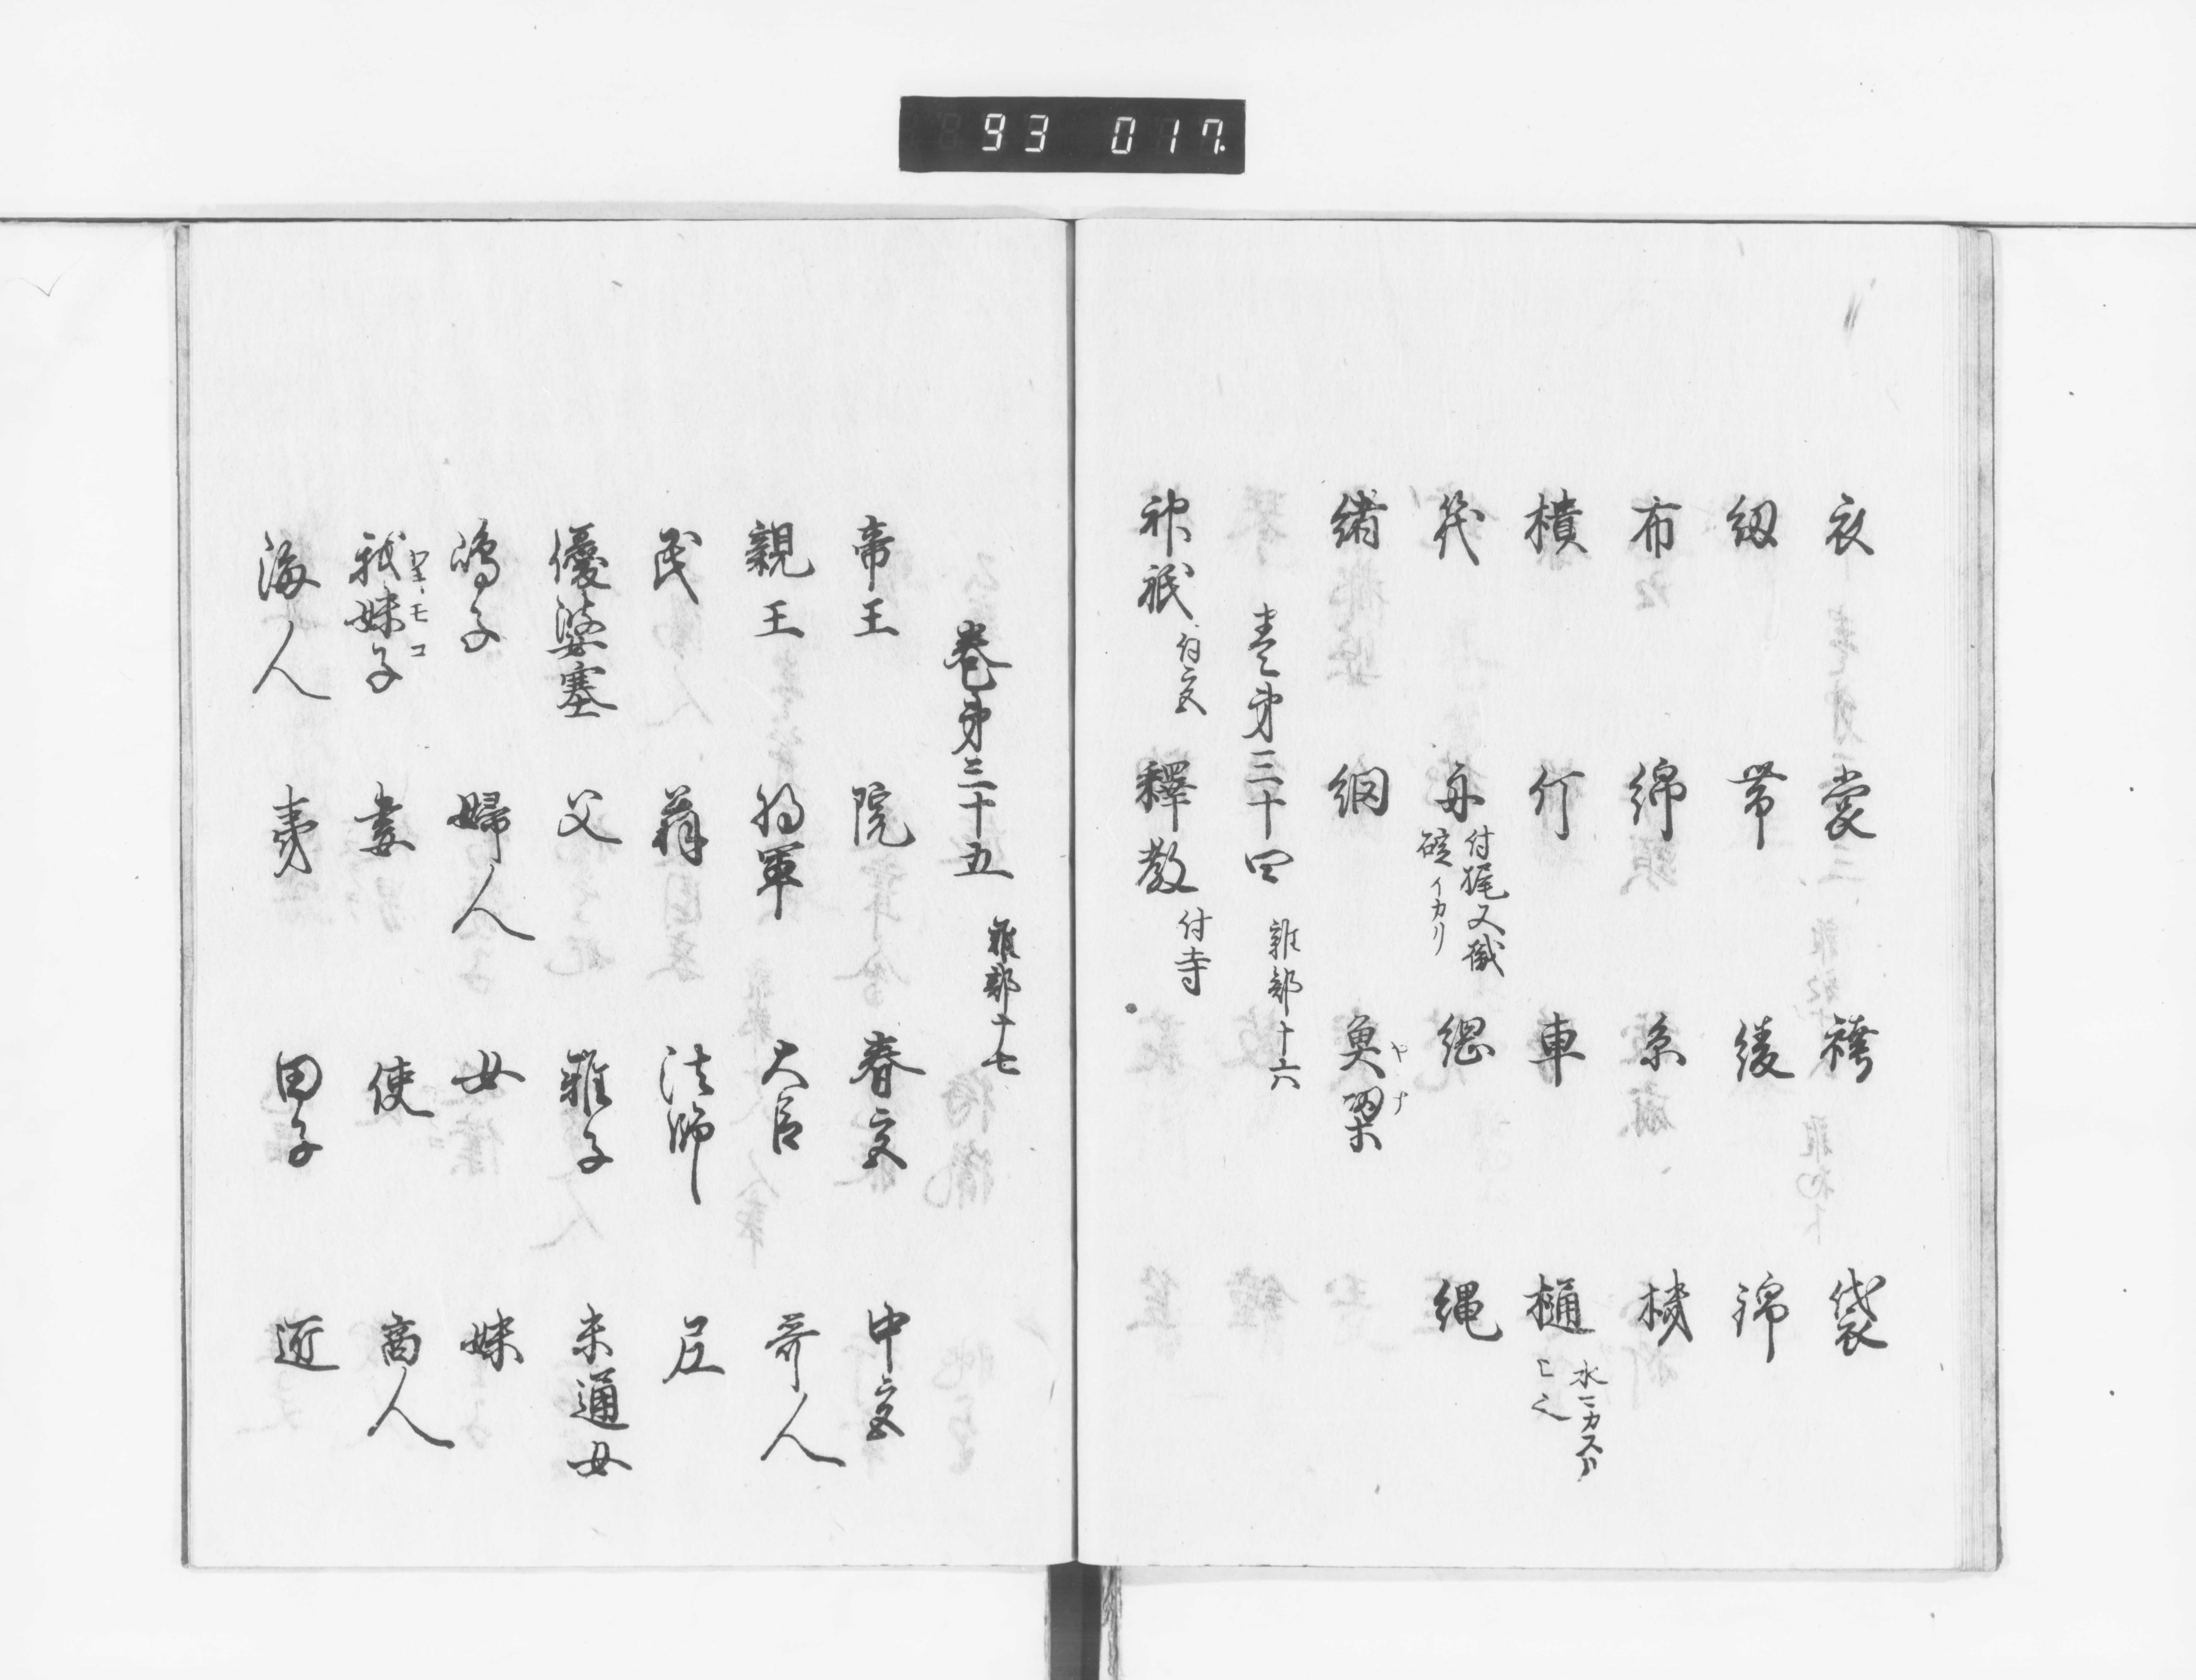 93 017
衣 裳 袴 袋
紐 帯 綾 錦
布 綿 糸 機
樻 行 車 樋 水ニカスリ
ヒニ
筏 舟 付梶又檝
碇イカリ 綱 縄
緒 網 魚梁 ヤナ
巻第三十四 雑部十六
神祇 付宮 釋教 付寺
巻第三十五 雑部十七
帝王 院 春宮 中宮
親王 将軍 大臣 哥人
民 翁 法師 尼
優婆塞 父 稚子 未通女
嶋子 婦人 女 妹
我妹子 妻 使 商人
海人 夷 田子 近